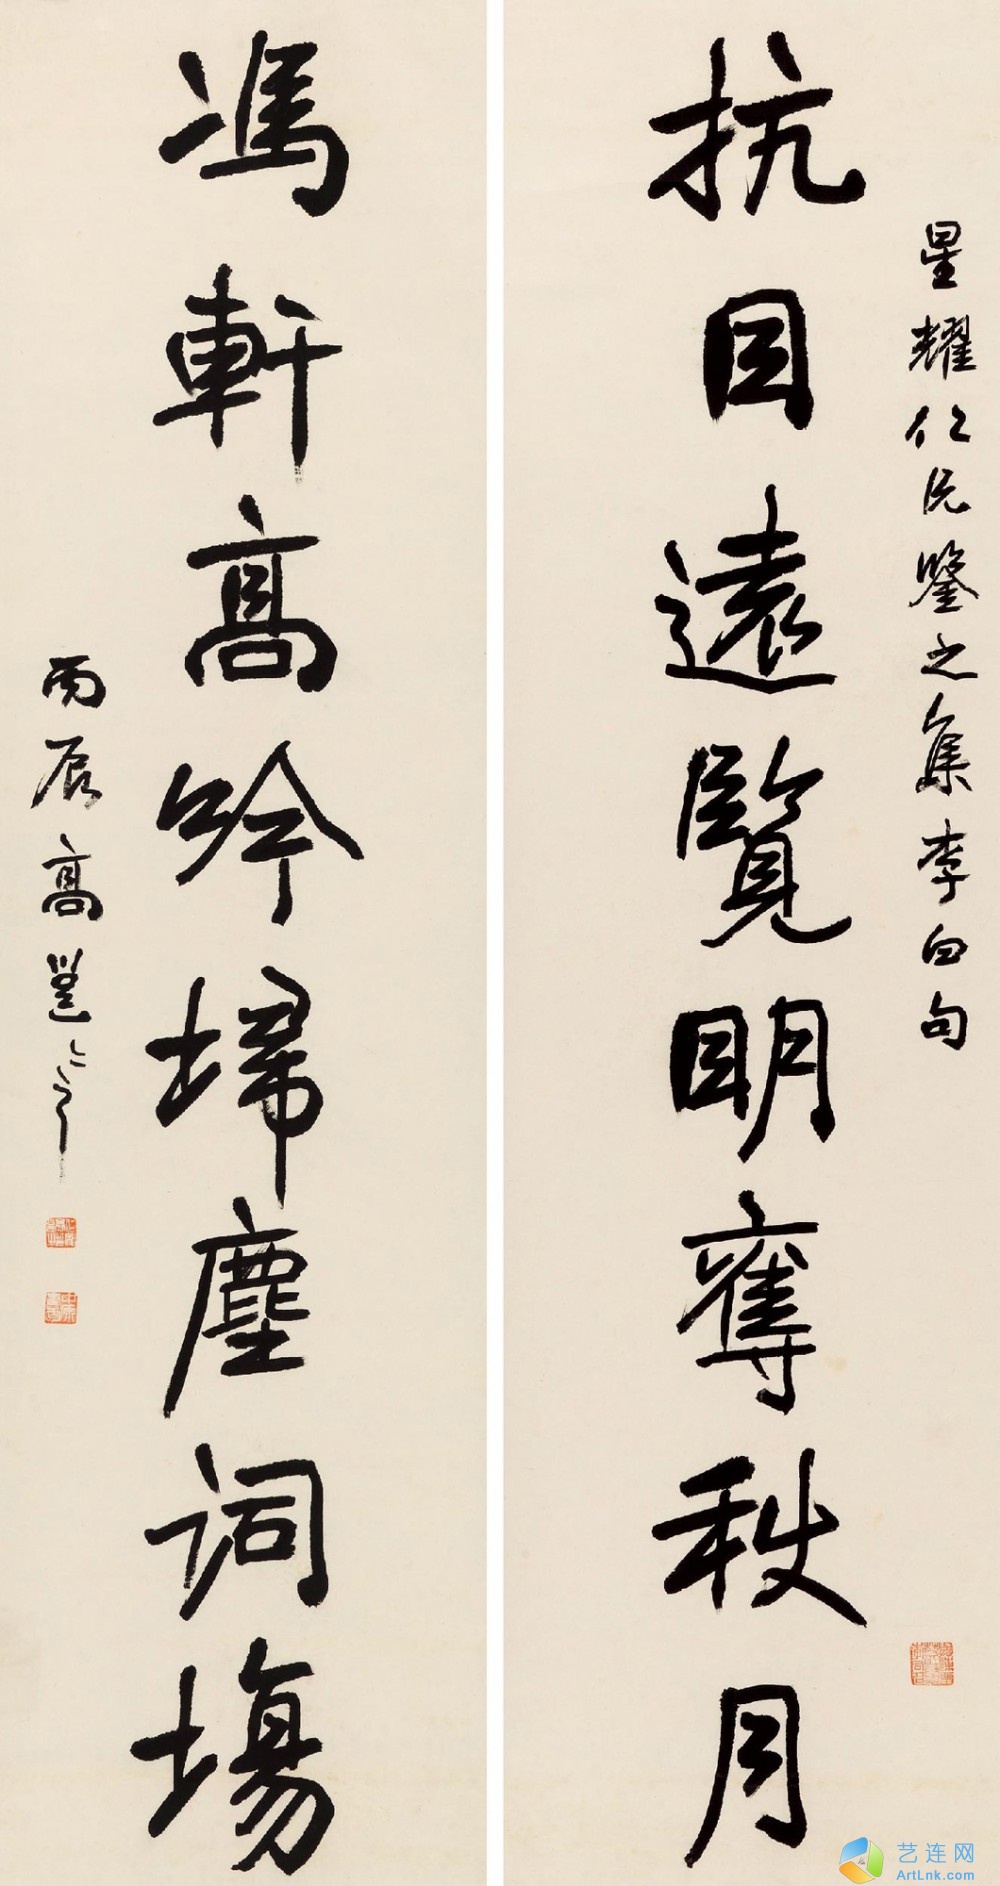 星耀仁兄鑒之集李白句
抗目遠覽明奪秋月
馮軒高吟埽塵詞場
丙辰高邕
艺连网
ArtLnk.com